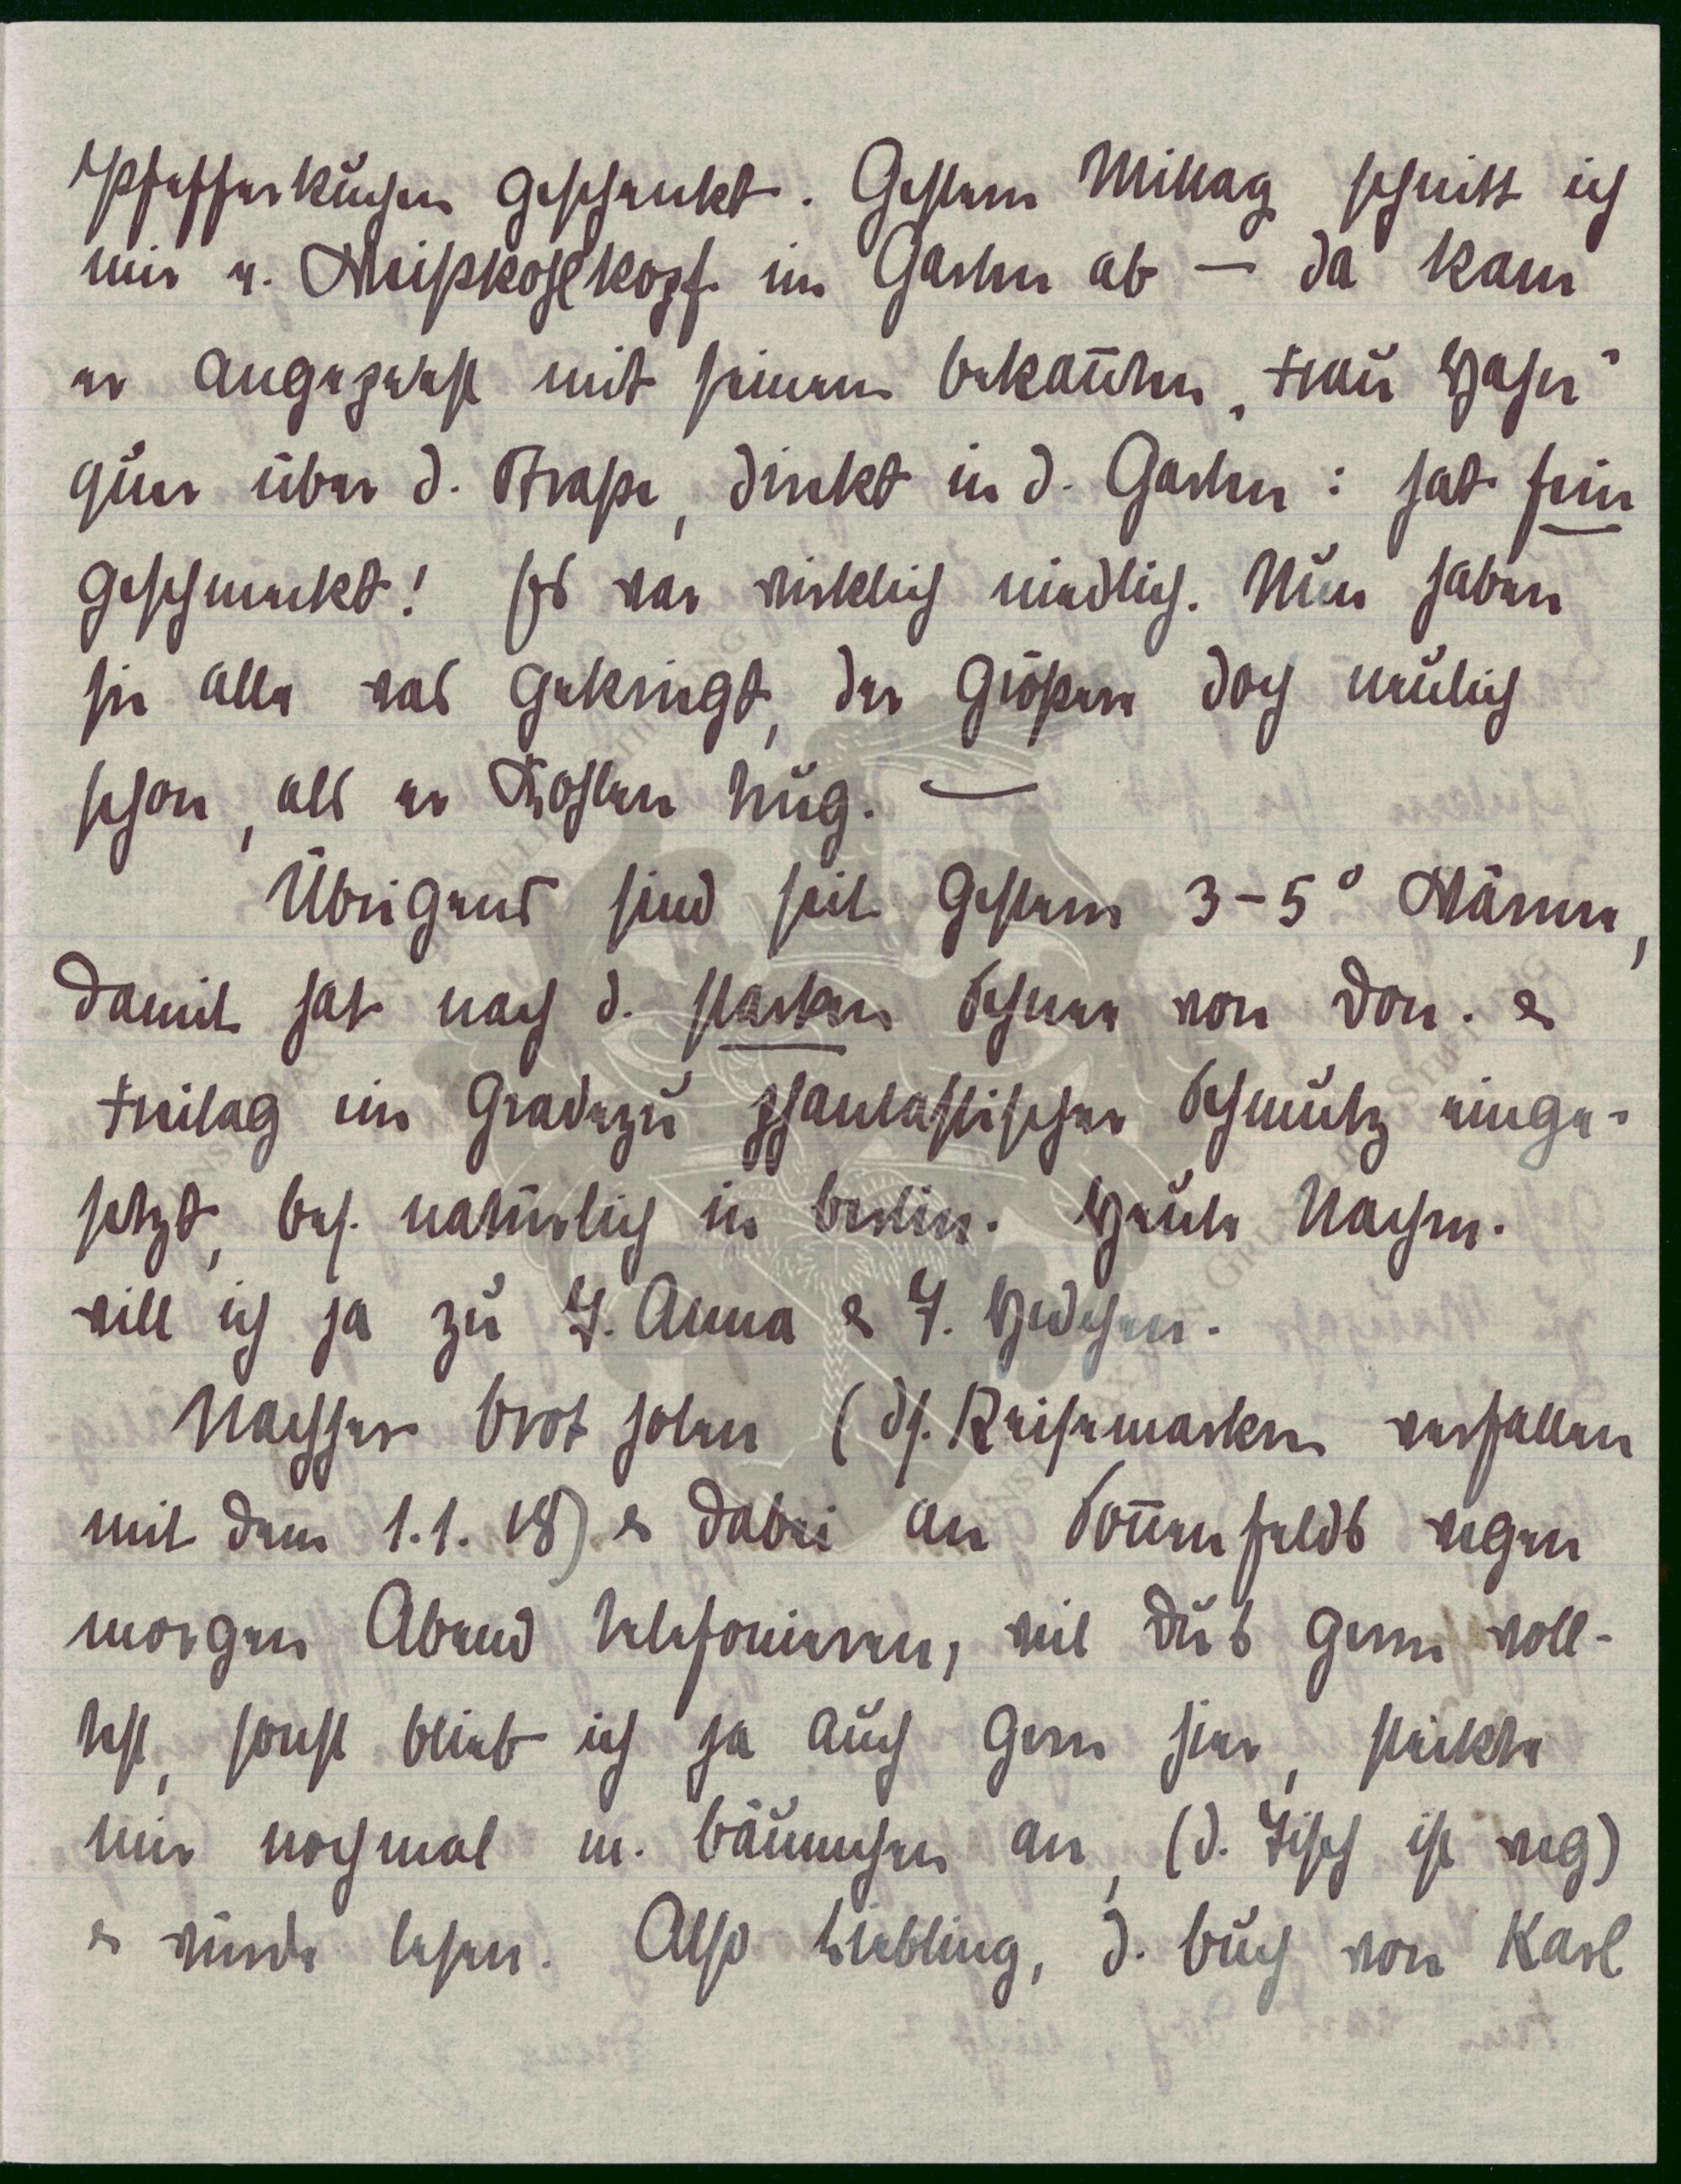 Pfefferkuchen geschenkt. Gestern Mittag schnitt ich
mir e. Weißkohlkopf im Garten ab — da kam
er angepeest mit seinem bekannten „Frau Hahn“
quer über d. Straße, direkt in d. Garten: hat fein
geschmeckt! Es war wirklich niedlich. Nun haben
sie alle was gekriegt, der Größere doch neulich
schon, als er Kohlen trug. —
Übrigens sind seit gestern 3-5° Wärme,
damit hat nach d. starken Schnee von Don. &
Freitag ein gradezu phantastischer Schmutz einge-
setzt, bes. natürlich in Berlin. Heute Nachm.
will ich ja zu T. Anna & T. Hedchen.
Nachher Brot holen (ds. Reisemarken verfallen
mit dem 1.1.18) & dabei an Sonnenfelds wegen
morgen Abend telefonieren, weil Du's gern woll-
test, sonst blieb ich ja auch gern hier, steckte
mir nochmal m. Bäumchen an, (d. Tisch ist weg)
& würde lesen. Also Liebling, d. Buch von Karl